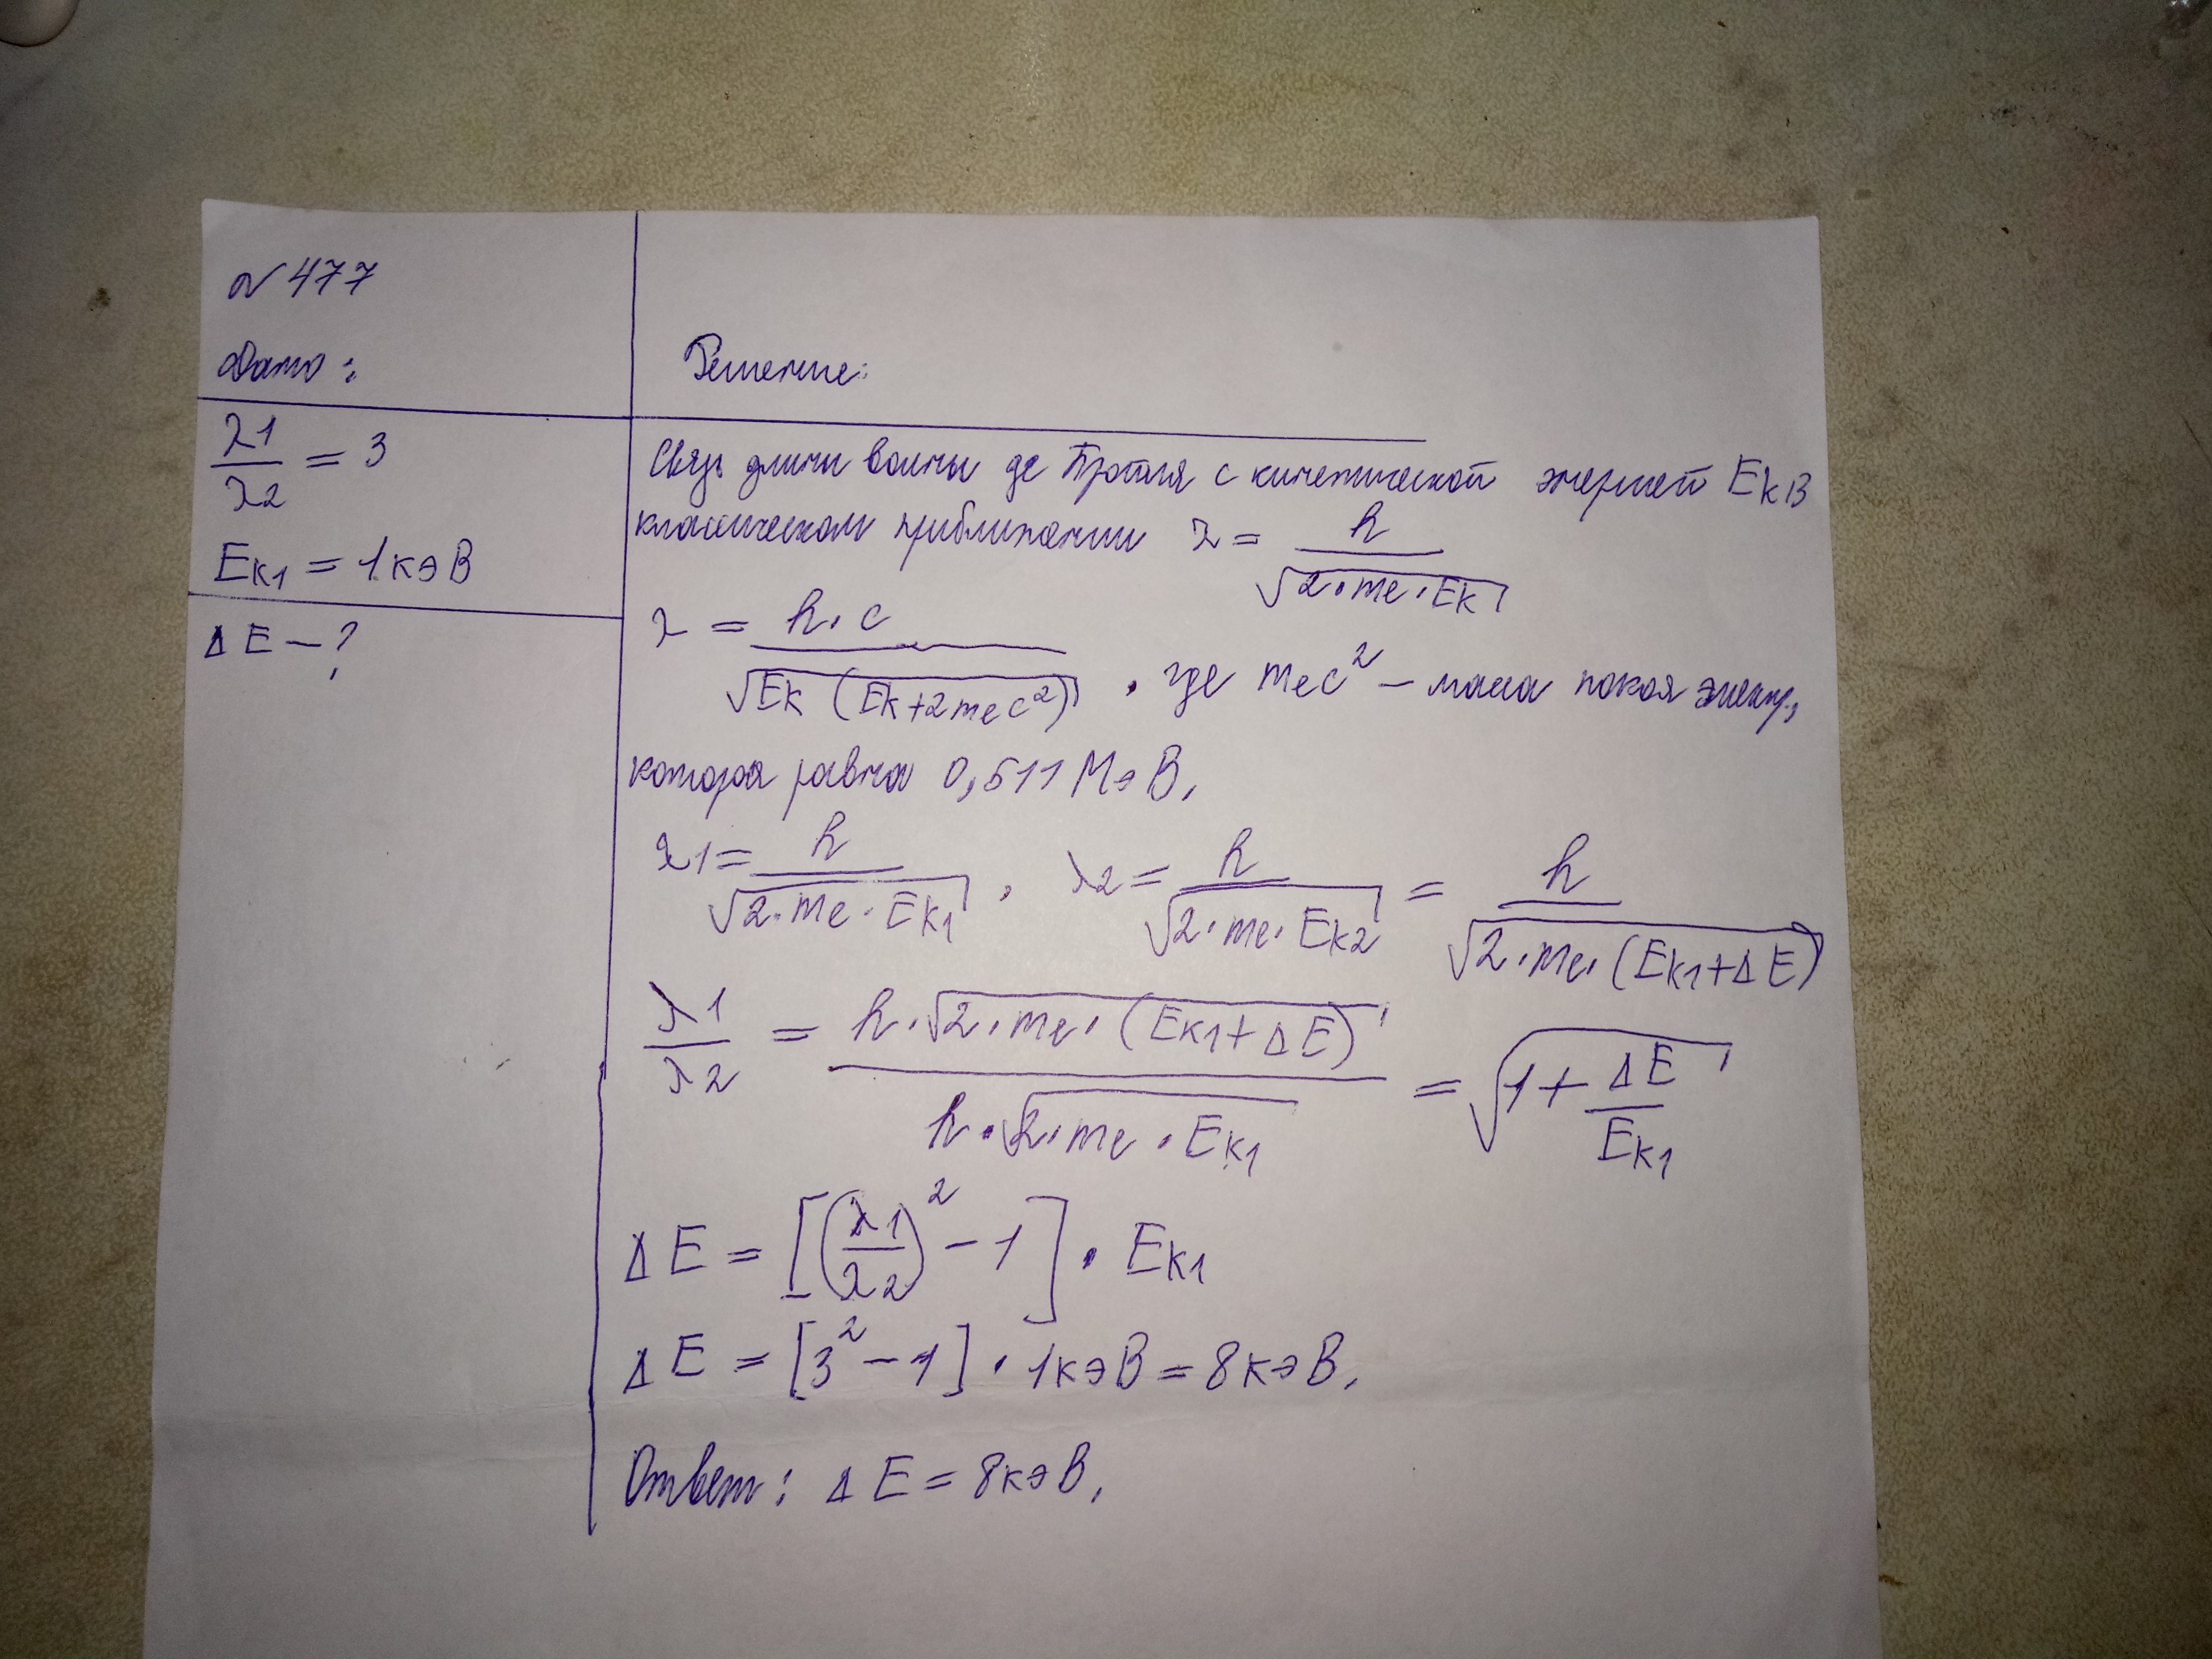 № 477
Дано:
λ1/λ2 = 3
Eк1 = 1кэВ
ΔE — ?
Решение:
Связь длины волны де Бройля с кинетической энергией Eк в
классическом приближении λ = h/√(2·me·Eк)
λ = h·c/√(Eк (Eк+2mec²)), где mec² – масса покоя электр.,
которая равна 0,511 МэВ.
λ1 = h/√(2·me·Eк1), λ2 = h/√(2·me·Eк2) = h/√(2·me·(Eк1+ΔE))
λ1/λ2 = h·√(2·me·(Eк1+ΔE))/h·√(2·me·Eк1) = √(1+ΔE/Eк1)
ΔE = [(λ1/λ2)² – 1] · Eк1
ΔE = [3² – 1] · 1кэВ = 8кэВ.
Ответ: ΔE = 8кэВ.